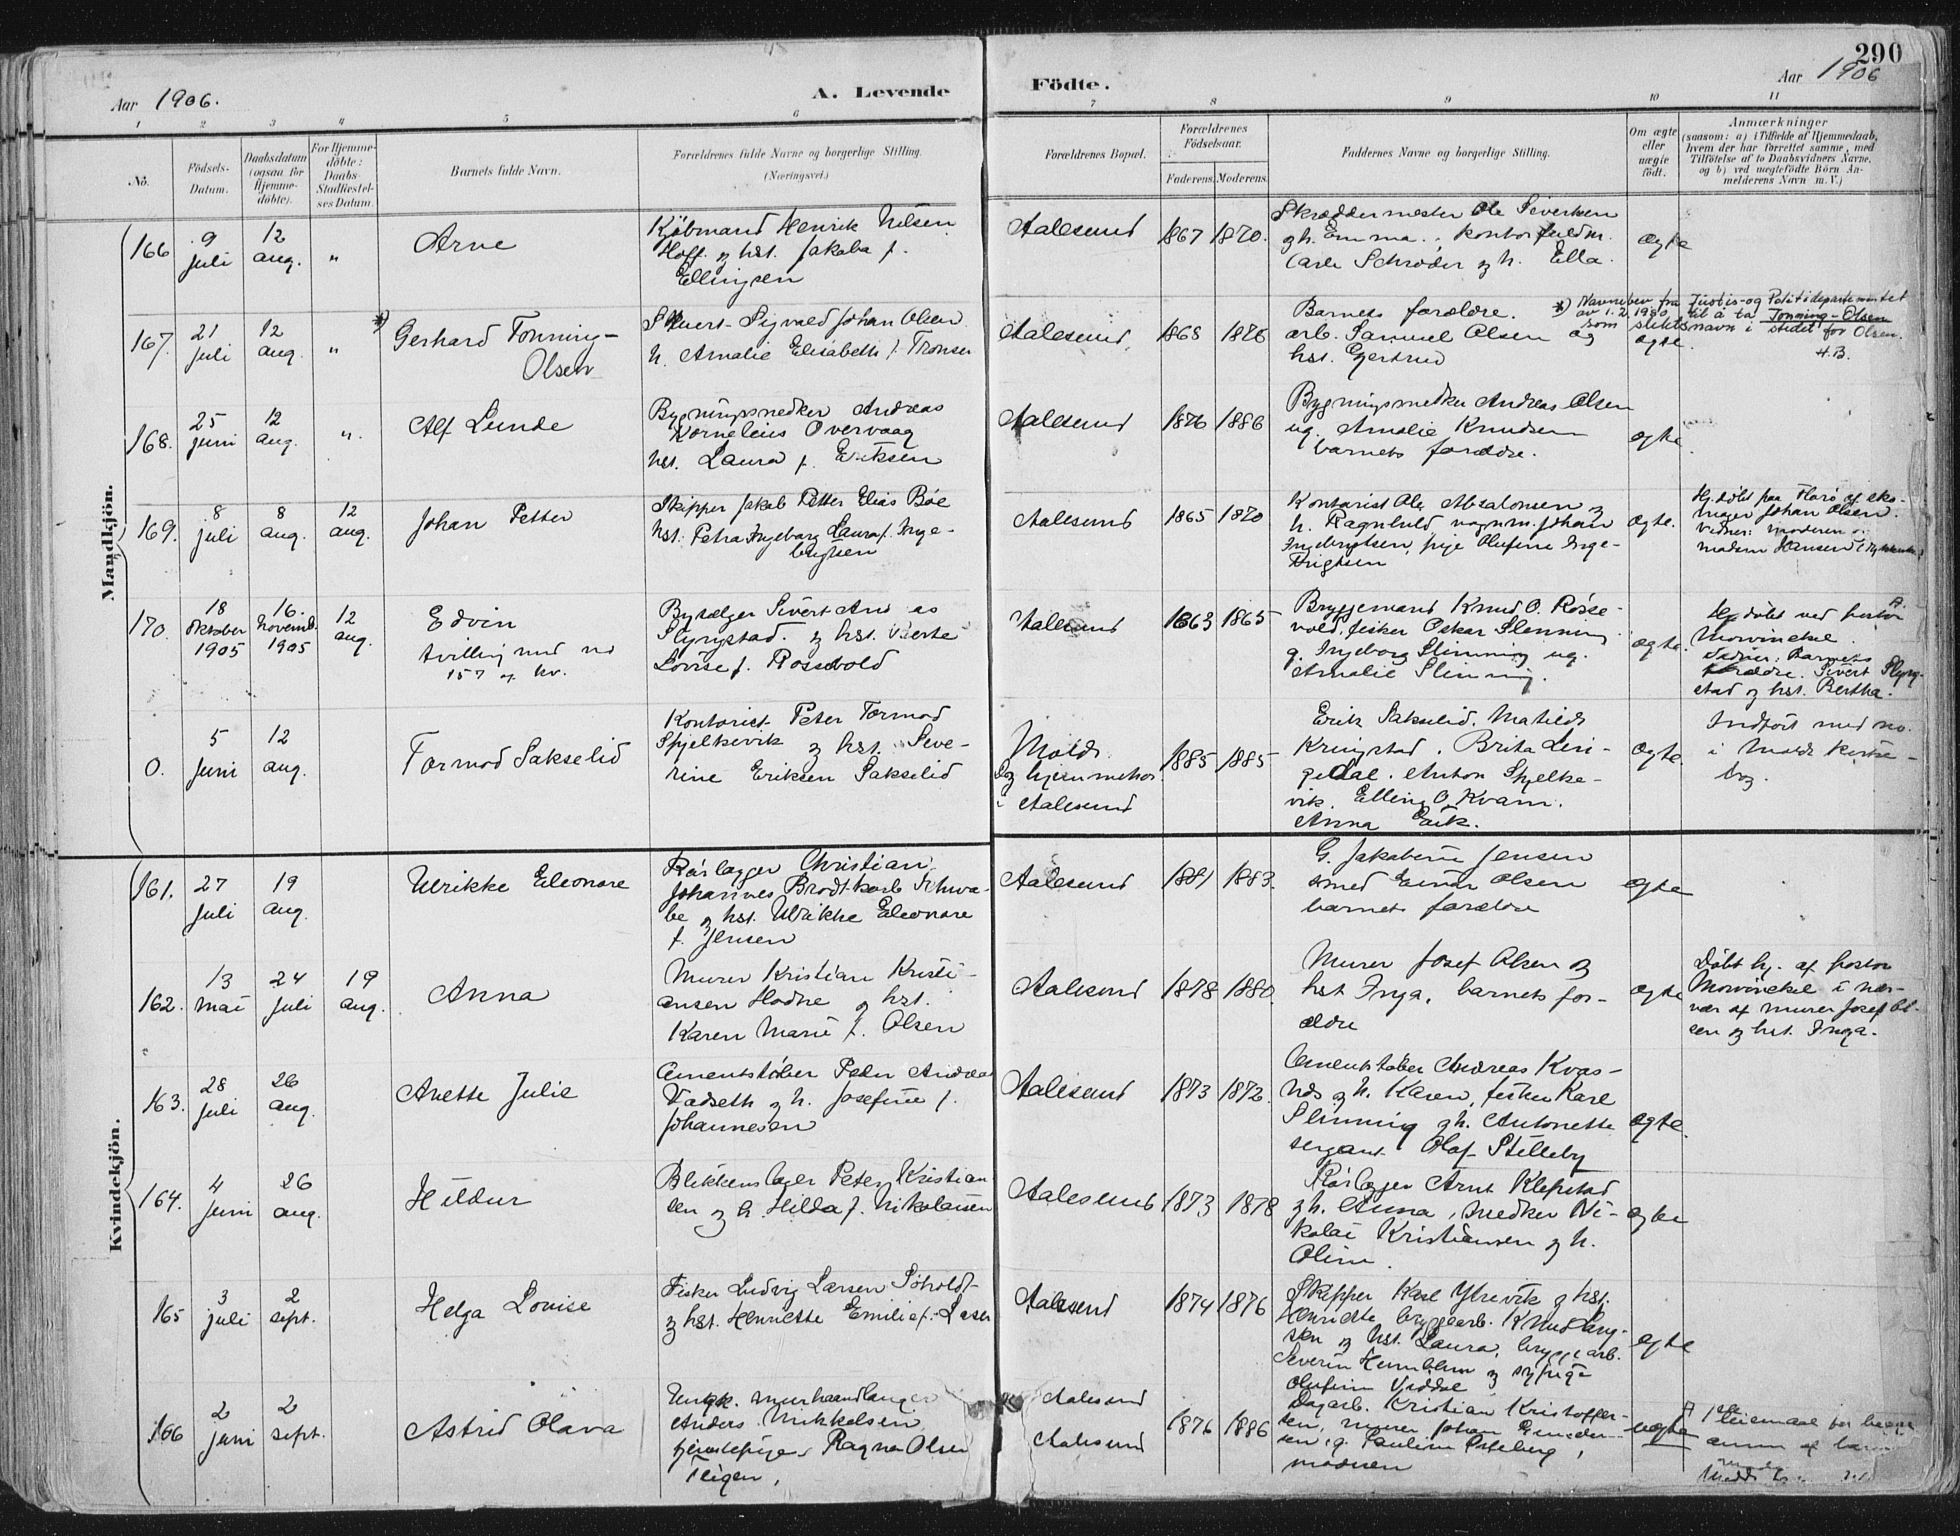 290
Aar 1906.
A. Levende
Födte.
Aar 1906
1 2 3 4 5 6 7 8 9 10 11
No.
Födsels-
Datum.
Daabsdatum
(ogsaa for
Hjemme-
döbte).
For Hjemme-
döbte:
Daabs-
Stadfæstel-
ses Datum.
Barnets fulde Navn.
Forældrenes fulde Navne og borgerlige Stilling.
(Næringsvei.)
Forældrenes Bopæl.
Forældrenes
Födselsaar.
Faderens. Moderens.
Faddernes Navne og borgerlige Stilling.
Om ægte
eller
uægte
födt.
Anmærkninger
(saasom: a) i Tilfælde af Hjemmedaab,
hvem der har forrettet samme, med
Tilföielse af to Daabsvidners Navne,
og b) ved uægtefödte Börn An-
melderens Navn m. V.)
Mandkjön.
166
9
juli
12
aug.
"
Arne
Købmand Henrik Nilsen
Hoff og hst. Jakoba f.
Ellingsen
Aalesund
1867 1870.
Skræddermester Ole Sivertsen
og h. Emma., kontorfuldm.
Carl Schrøder og h. Ella.
ægte
167.
21
juli
12
aug.
"
*) Gerhard Tonning-
Olsen
Sigvald Johan Olsen
h. Amalie Elisabeth f. Tronsen
Aalesund
1868 1876
Barnets forældre.
arb. Samuel Olsen og
hst. Gjertrud
ægte.
*) Navnebev. fra Justis- og Politidepartementet
av 1.2.1930 til å ta Tonning-Olsen
som slektsnavn i stedet for Olsen.
H.B.
168.
25
juni
12
aug.
"
Alf Lunde
Bygningssnedker Andreas
Kornelius Overvaag
hst. Laura f. Eriksen
Aalesund
1876 1886
Bygningssnedker Andreas Olsen
ug. Amalie Knudsen
barnets forældre.
ægte
169.
8
juli
8
aug.
12
aug.
Johan Petter
Skipper Jakob Petter Elias Bøe
hst. Petra Ingeborg Laura f. Inge-
brigtsen
Aalesund
1865 1870
Kontorist Ole Absalonsen og
h. Ragnhild vognm. Johan
Ingebrigtsen, pige Olufine Inge-
brigtsen
ægte.
Hj. døbt paa Florø af
Johan Olsen.
Vidner: moderen og
madam Hansen
170.
18
oktober
1905
16.
novemb.
1905
12
aug.
Edvin
tvilling med no
157 af kv.
Bysælger Sivert Andreas
Slyngstad. og hst. Berte
Lovise f. Rossevold
Aalesund
1863 1865
Bryggemand Knud O. Røsse-
vold, fisker Oskar Slenning
g. Ingeborg Slinning ug.
Amalie Slinning.
ægte.
Hj. døbt ved pastor A.
Mowinckel.
Vidner: Barnets
forældre. Sivert Slyng-
stad og hst. Bertha.
0.
5
juni
12
aug.
Tormod Sakselid
Kontorist Peter Tormod
Spjelkevik og hst. Seve-
rine Eriksen Sakselid
Molde
og hjemmehør.
i Aalesund
1885 1885
Erik Sakselid. Matilde
Kringstad, Brita Lin-
gedal. Anton Spjelke-
vik. Elling O. Kvam.
Anna Erik.
ægte.
Indført med no.
i Molde kirke-
bog.
Kvindekjön.
161.
27
juli
19
aug.
Ulrikke Eleonore
Rørlægger Christian
Johannes Brodtkorb Schwa-
be og hst. Ulrikke Eleonore
f. Jensen
Aalesund
1881 1883.
G. Jakobine Jensen
smed Einar Olsen
barnets forældre
ægte
162.
13
mai
24
juli
19
aug.
Anna
Murer Kristian Kristi-
ansen Hodne og hst.
Karen Marie f. Olsen
Aalesund
1878 1880
Murer Josef Olsen og
hst Inga, barnets for-
ældre
ægte
Døbt hj. af pastor
Mowinckel i nær-
vær af murer Josef Ol-
sen og hst. Inga.
163.
28
juli
26
aug.
Anette Julie
Cementstøber Peder Andreas
Vadseth og h. Josefine f.
Johannesen
Aalesund
1873 1872.
Cementstøber Andreas Kvas-
nes og h. Karen, fisker Karl
Slinning og h. Antonette
sergeant Olaf Stilleby
ægte.
164.
4
juni
26
aug.
Hildur
Blikkenslager Peter Kristian
sen og h. Hilda f. Nikolaisen
Aalesund
1873 1878
Rørlægger Arnt Klepstad
og h. Anna, snedker Ni-
kolai Kristiansen og h.
Oline.
ægte
165
3
juli
2
sept.
Helga Lovise
Fisker Ludvig Larsen Søholdt
og hst. Henriette Emilie f. Larsen
Aalesund
1874 1876
Skipper Karl Ytrevik og hst.
Henriette bryggearb. Knud Lang-
sen og hst. Laura, bryggearb.
Severin Humblen og sypige
Olufine Viddal
ægte
166
2
juni
2
sept.
Astrid Olava
Ungk. murhaandlanger
Anders Mikkelsen
tjenestepige Ragna Olsen
Teigen,
Aalesund
Aalesund
1876 1886
Dagarb. Kristian Kristoffer-
sen, murer Johan Gunder-
sen, g. Pauline
moderen
uægte
1ste leiermaal for begge
anm. af